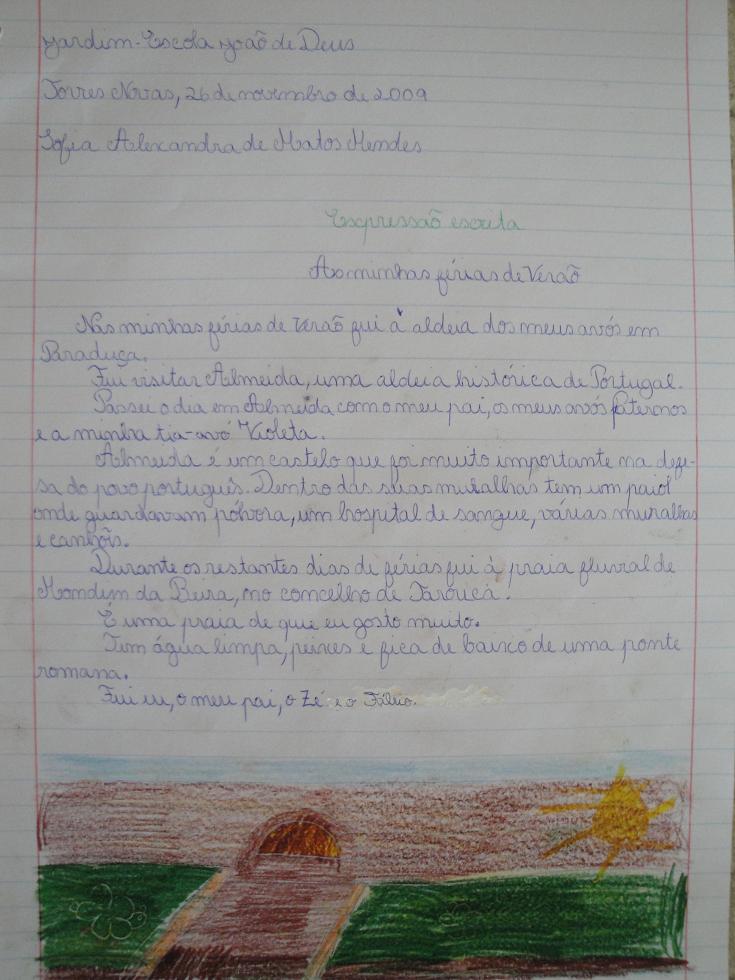 Jardim-Escola João de Deus
Torres Novas, 26 de novembro de 2009
Sofia Alexandra de Matos Mendes
Expressão escrita
As minhas férias de Verão
Nas minhas férias de Verão fui à aldeia dos meus avós em
Paraduça.
Fui visitar Almeida, uma aldeia histórica de Portugal.
Passei o dia em Almeida com o meu pai, os meus avós paternos
e a minha tia-avó Violeta.
Almeida é um castelo que foi muito importante na defe-
sa do povo português. Dentro das suas muralhas tem um paiol
onde guardavam pólvora, um hospital de sangue, várias muralhas
e canhões.
Durante os restantes dias de férias fui à praia fluvral de
Mondim da Beira, no concelho de Tarouca.
É uma praia de que eu gosto muito.
Tem água limpa, peixes e fica de baixo de uma ponte
romana.
Fui eu, o meu pai, o Zé e o Fábio.